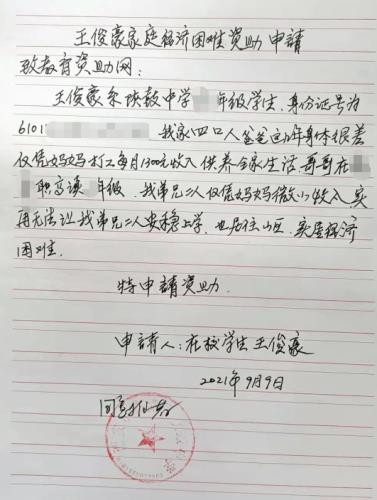 王俊豪家庭经济困难资助申請
致教育资助网：
王俊豪系 中学 年级学生，身份证号为
6101 我家四口人爸爸这几年身体很差
仅凭妈妈打工每月1300元收入供养全家生活，哥哥在
职高读 年级，我弟兄二人仅凭妈妈微小收入实
再无法让我弟兄二人安稳上学，也居住山区，实属经济
困难。
特申請资助.
申請人：在校学生王俊豪
2021年9月9日